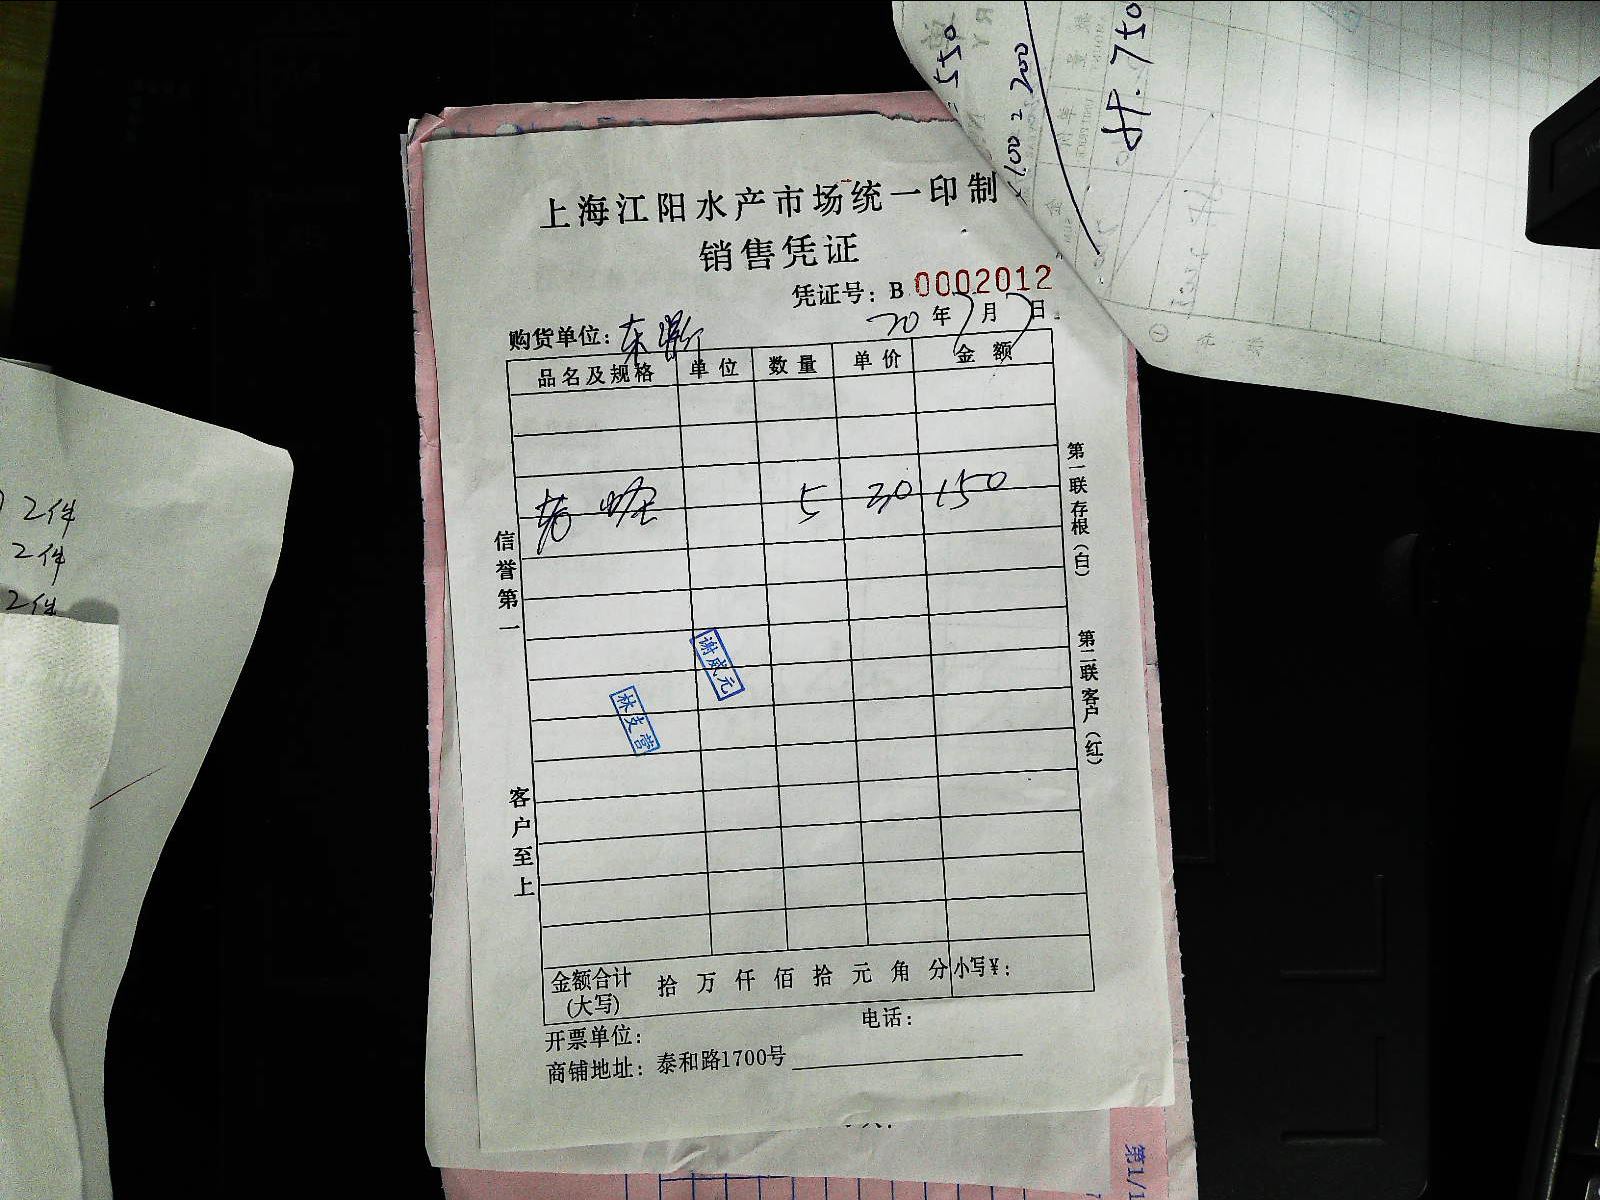 上海江阳水产市场统一印制
销售凭证
凭证号：B 0002012
购货单位： 20年7月7日
品名及规格 单位 数量 单价 金额
5 30 150
信誉第一
客户至上
第一联存根（白）
第二联客户（红）
谢成元
林支营
金额合计（大写） 拾 万 仟 佰 拾 元 角 分 小写￥：
开票单位： 电话：
商铺地址：泰和路1700号
2件
2件
2件
550
100 = 200
750
第1/1